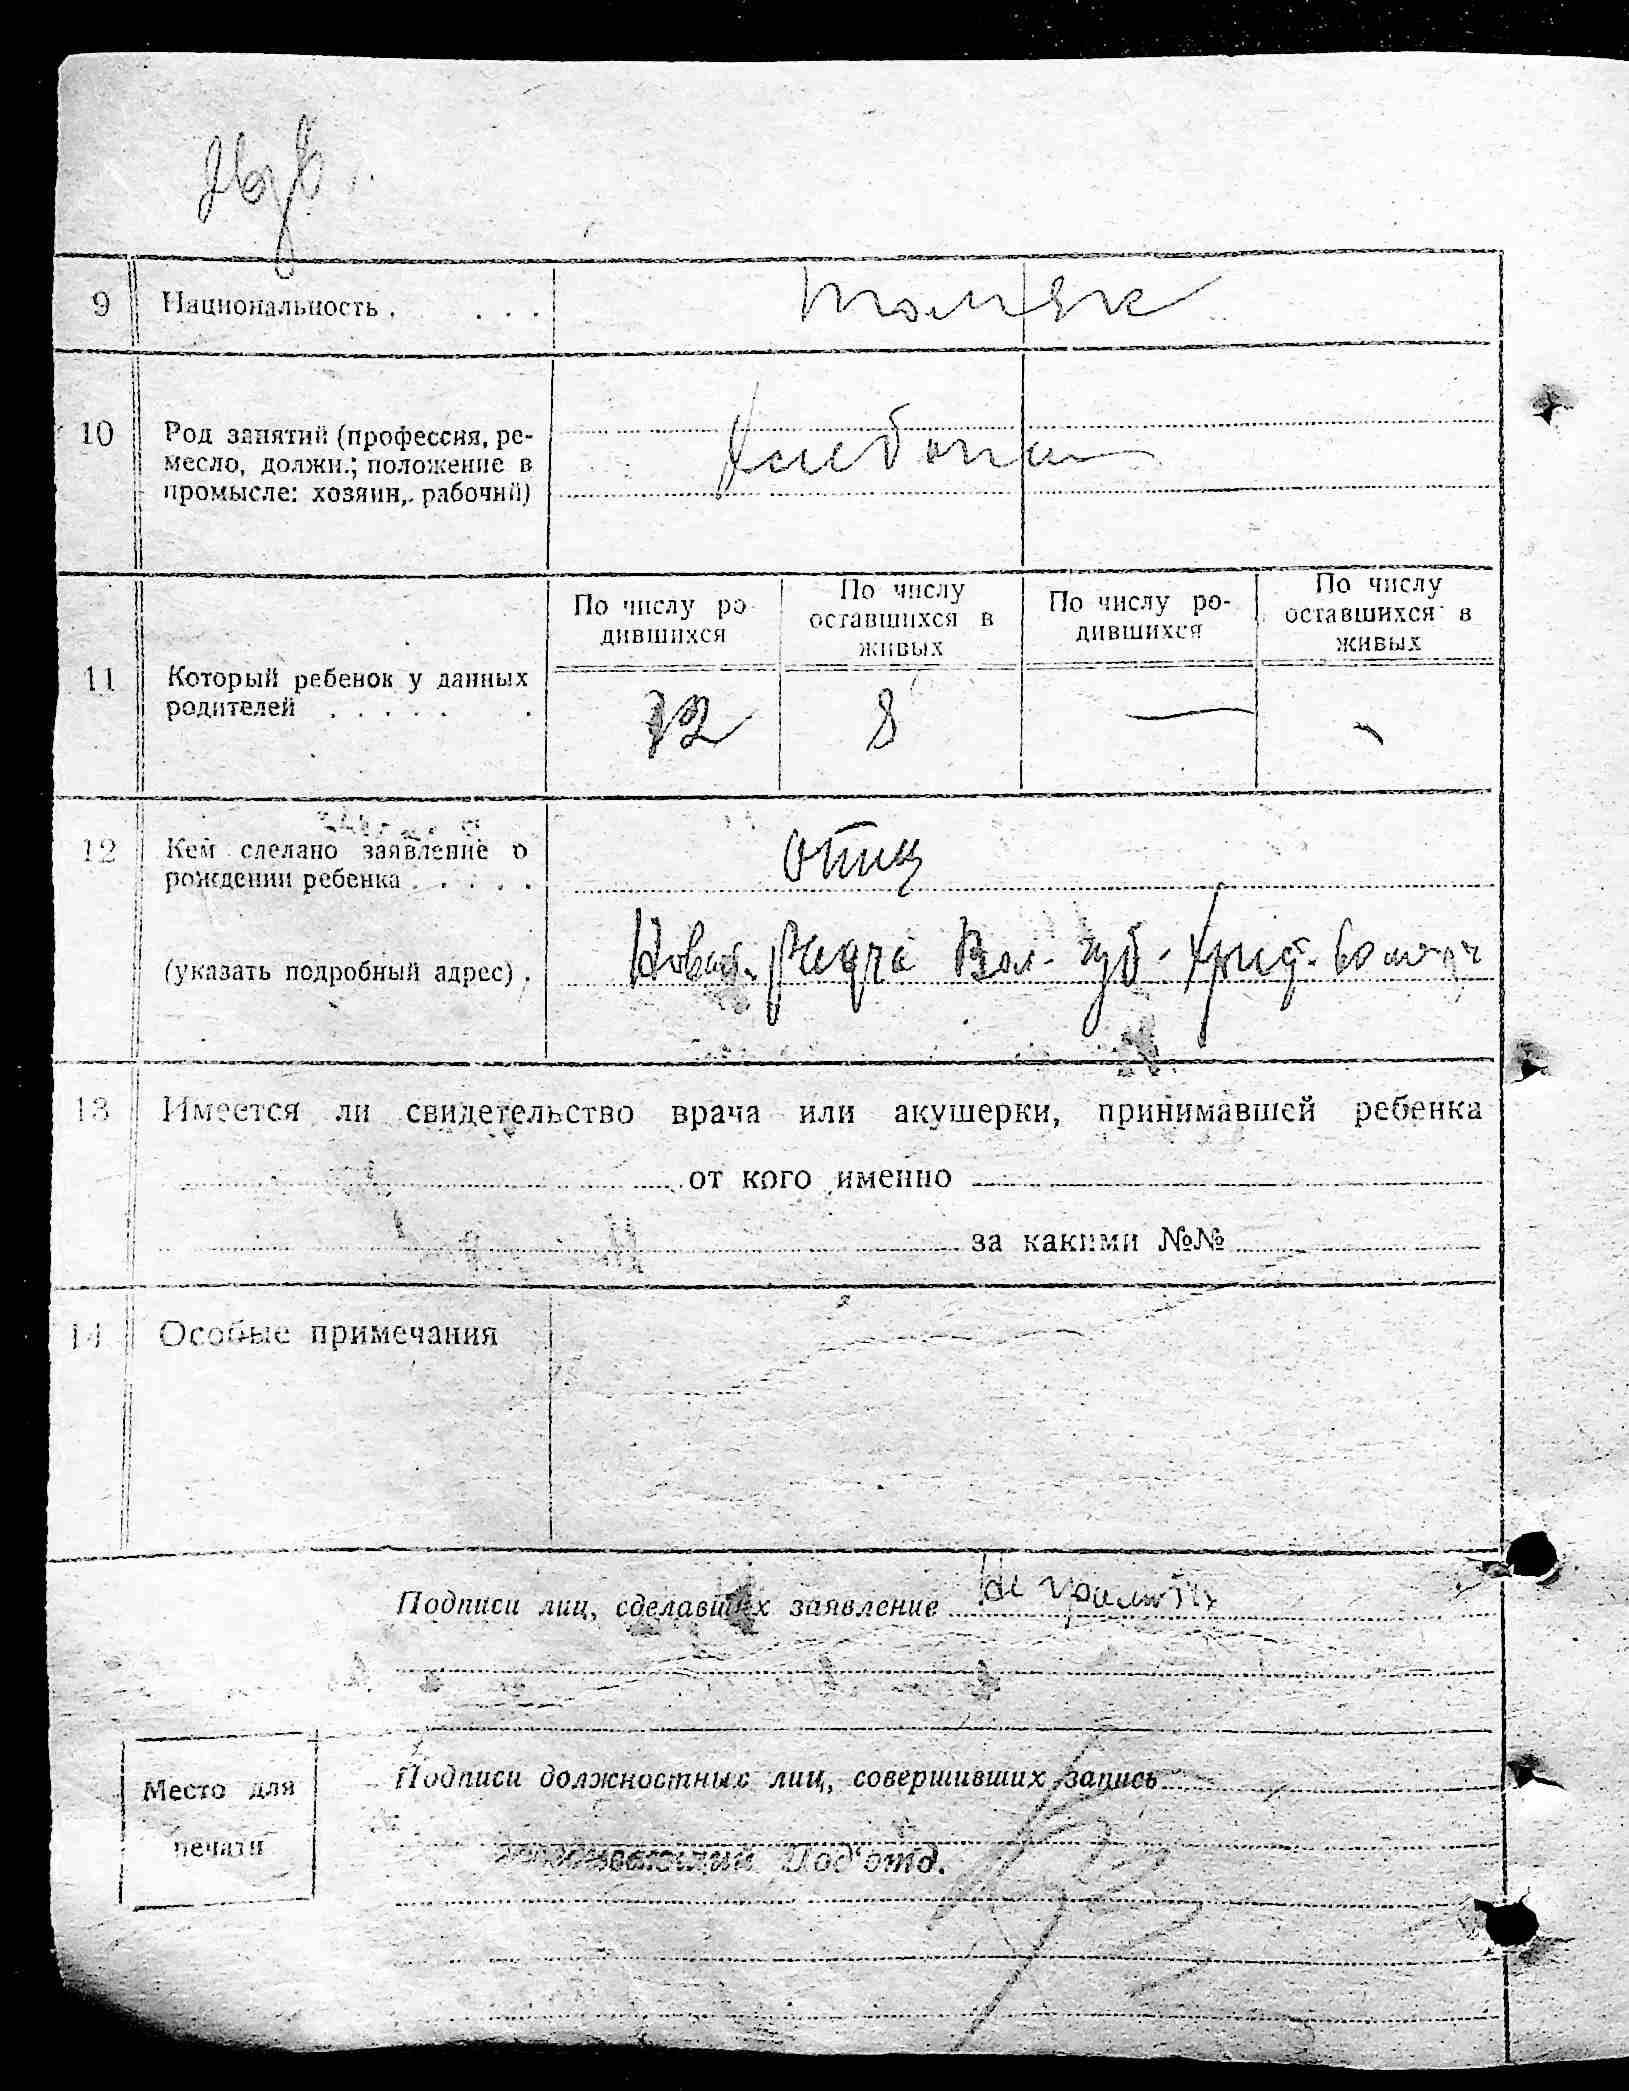 9 Национальность . . . .
10 Род занятий (профессия, ре-
месло, должн.; положение в
промысле: хозяин, рабочий)
По числу ро-
дившихся
По числу
оставшихся в
живых
По числу ро-
дившихся
По числу
оставшихся в
живых
11 Который ребенок у данных
родителей . . . . . .
12 8 — -
12 Кем сделано заявление о
рождении ребенка . . . . .
отец
(указать подробный адрес) .
Вол. губ.
13 Имеется ли свидетельство врача или акушерки, принимавшей ребенка
от кого именно
за какими №№
14 Особые примечания
Подписи лиц, сделавших заявление
Место для
печати
Подписи должностных лиц, совершивших запись
Под'отд.